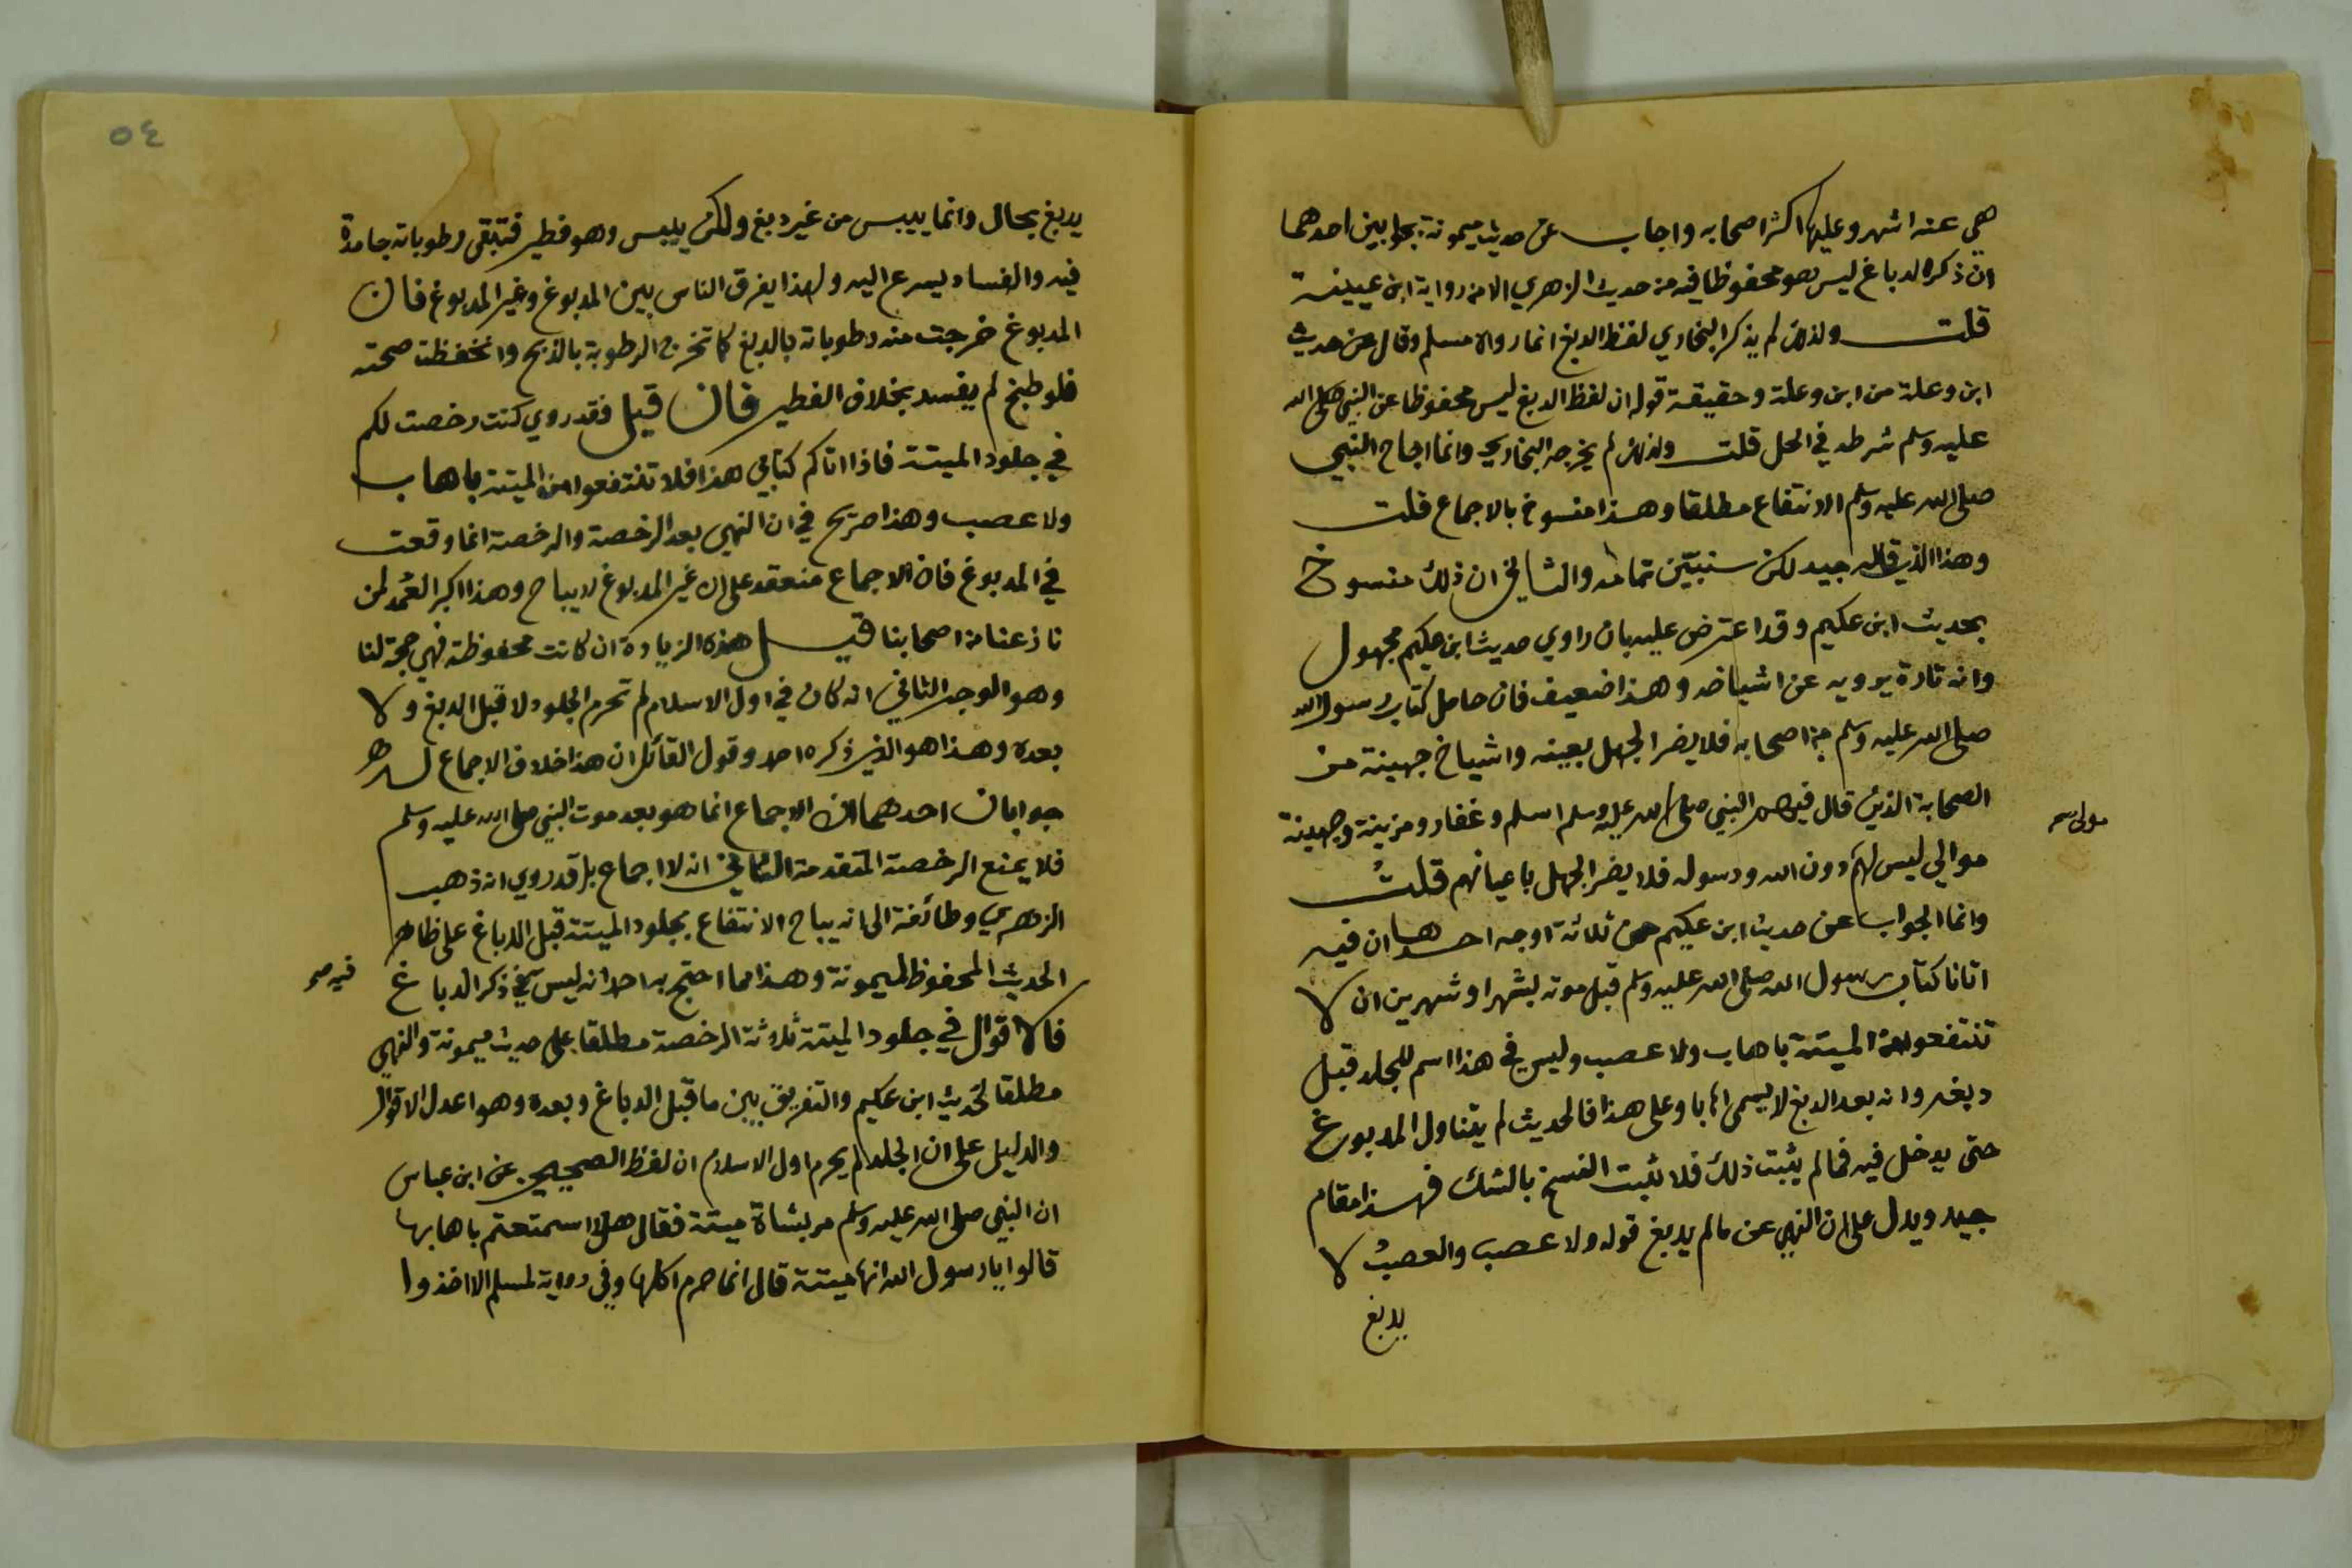 هي عنه اشهر وعليها اكثر اصحابه واجاب عن حديث ميمونة بجوابين احدهما
ان ذكر الدباغ ليس هو محفوظا فيه من حديث الزهري الا من رواية ابن عيينة
قلت ولذلك لم يذكر البخاري لفظ الدبغ انما رواه مسلم وقال عن حديث
ابن وعلة من ابن وعلة وحقيقة قوله ان لفظ الدبغ ليس محفوظا عن النبي صلى الله
عليه وسلم شرطه في الحل قلت ولذلك لم يخرجه البخاري وانما اباح النبي
صلى الله عليه وسلم الانتفاع مطلقا وهذا منسوخ بالاجماع قلت
وهذا الذي قاله جيد لكن سنبيّن تمامه والثاني ان ذلك منسوخ
بحديث ابن عكيم وقد اعترض عليه بان راوي حديث ابن عكيم مجهول
وانه تارة يرويه عن اشياخه وهذا ضعيف فان حامل كتاب رسول الله
صلى الله عليه وسلم من اصحابه فلا يضر الجهل بعينه واشياخ جهينة من
الصحابة الذين قال فيهم النبي صلى الله عليه وسلم اسلم وغفار ومزينة وجهينة
موالي ليس لهم دون الله ورسوله فلا يضر الجهل باعيانهم قلت
مولى صح
وانما الجواب عن حديث ابن عكيم من ثلاثة اوجه احدها ان فيه
اتانا كتاب رسول الله صلى الله عليه وسلم قبل موته بشهر او شهرين ان لا
تنتفعوا من الميتة باهاب ولا عصب وليس في هذا اسم للجلد قبل
دبغه وانه بعد الدبغ لا يسمى اهابا وعلى هذا فالحديث لم يتناول المدبوغ
حتى يدخل فيه فما لم يثبت ذلك فلا يثبت النسخ بالشك فهذا مقام
جيد ويدل على ان النهي عن ما لم يدبغ قوله ولا عصب والعصب لا
يدبغ
٥٤
يدبغ بحال وانما ييبس من غير دبغ ولكن ييبس وهو فطير فتبقى رطوباته جامدة
فيه والفساد يسرع اليه ولهذا يفرق الناس بين المدبوغ وغير المدبوغ فان
المدبوغ خرجت منه رطوباته بالدبغ كما تخرج الرطوبة بالذبح وانحفظت صحته
فلو طبخ لم يفسد بخلاف الفطير فان قيل فقد روي كنت رخصت لكم
في جلود الميتة فاذا اتاكم كتابي هذا فلا تنتفعوا من الميتة باهاب
ولا عصب وهذا صريح في ان النهي بعد الرخصة والرخصة انما وقعت
في المدبوغ فان الاجماع منعقد على ان غير المدبوغ لا يباح وهذا اكبر العُمد لمن
نازعنا من اصحابنا قيل هذه الزيادة ان كانت محفوظة فهي حجة لنا
وهو الوجه الثاني انه كان في اول الاسلام لم تحرم الجلود لا قبل الدبغ ولا
بعده وهذا هو الذي ذكره احمد وقول القائل ان هذا خلاف الاجماع
جوابان احدهما ان الاجماع انما هو بعد موت النبي صلى الله عليه وسلم
فلا يمنع الرخصة المتقدمة الثاني انه لا اجماع بل قد روي انه ذهب
الزهري وطائفة الى انه يباح الانتفاع بجلود الميتة قبل الدباغ على ظاهر
الحديث المحفوظ لميمونة وهذا مما احتج به احمد انه ليس في ذكر الدباغ
فيه صح
فالاقوال في جلود الميتة ثلاثة الرخصة مطلقا على حديث ميمونة والنهي
مطلقا لحديث ابن عكيم والتفريق بين ما قبل الدباغ وبعده وهو اعدل الاقوال
والدليل على ان الجلد لم يحرم اول الاسلام ان لفظ الصحيحين عن ابن عباس
ان النبي صلى الله عليه وسلم مر بشاة ميتة فقال هلا استمتعتم باهابها
قالوا يا رسول الله انها ميتة قال انما حرم اكلها وفي رواية لمسلم الا اخذوا